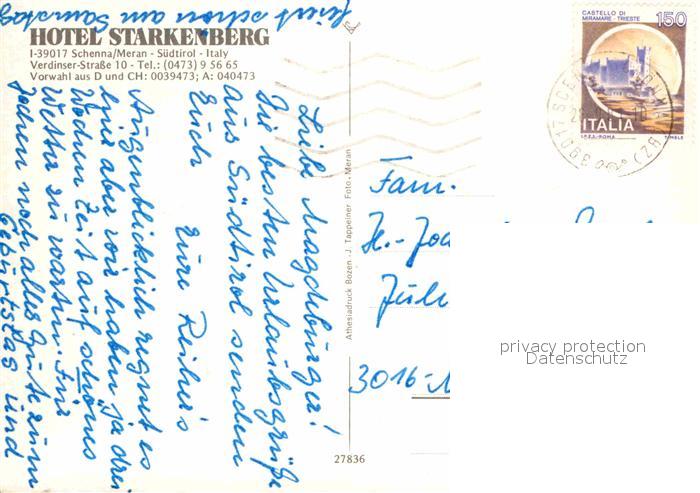 HOTEL STARKENBERG
I-39017 Schenna/Meran - Südtirol - Italy
Verdinser-Straße 10 - Tel.: (0473) 9 56 65
Vorwahl aus D und CH: 0039473; A: 040473
Liebe Magdeburger!
Die besten Urlaubsgrüße
aus Südtirol senden
Euch
Eure Reiher's
Augenblicklich regnet es
hier aber wir haben ja drei
Wochen Zeit auf schönes
Wetter zu warten. Für
Jochen noch alles Gute zum
Geburtstag und
feiert schön am Samstag
Athesiadruck Bozen - J. Tappeiner Foto, Meran
27836
CASTELLO DI
MIRAMARE - TRIESTE
150
ITALIA
I.P.Z.S.-ROMA
39017 (BZ)
Fam.
H.-Joa
3016
privacy protection
Datenschutz